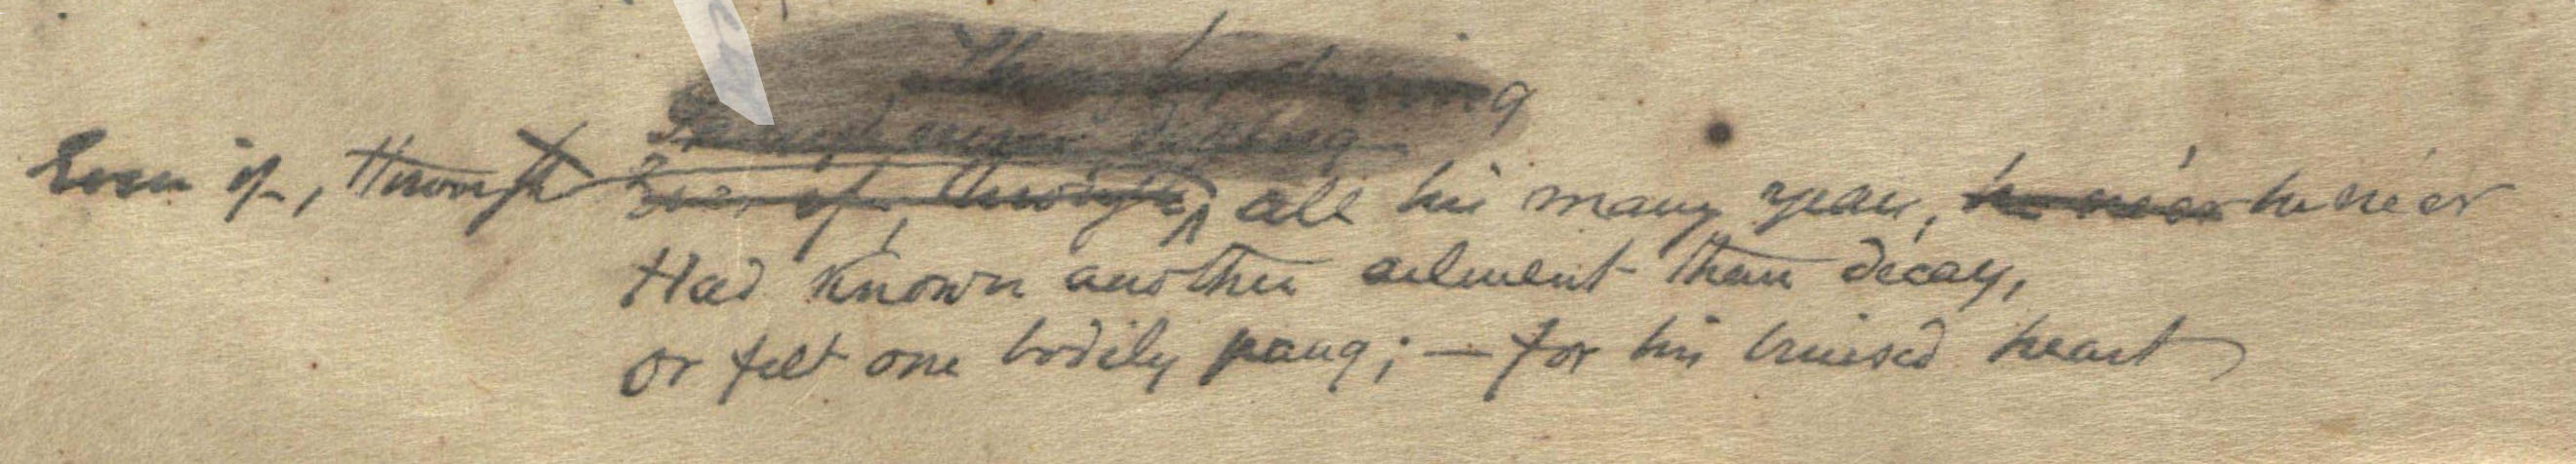 Even if, through ~~Even if, through~~ all his many years, ~~he ne'er~~ he ne'er
Had known another ailment than decay,
Or felt one bodily pang; — for his bruised heart